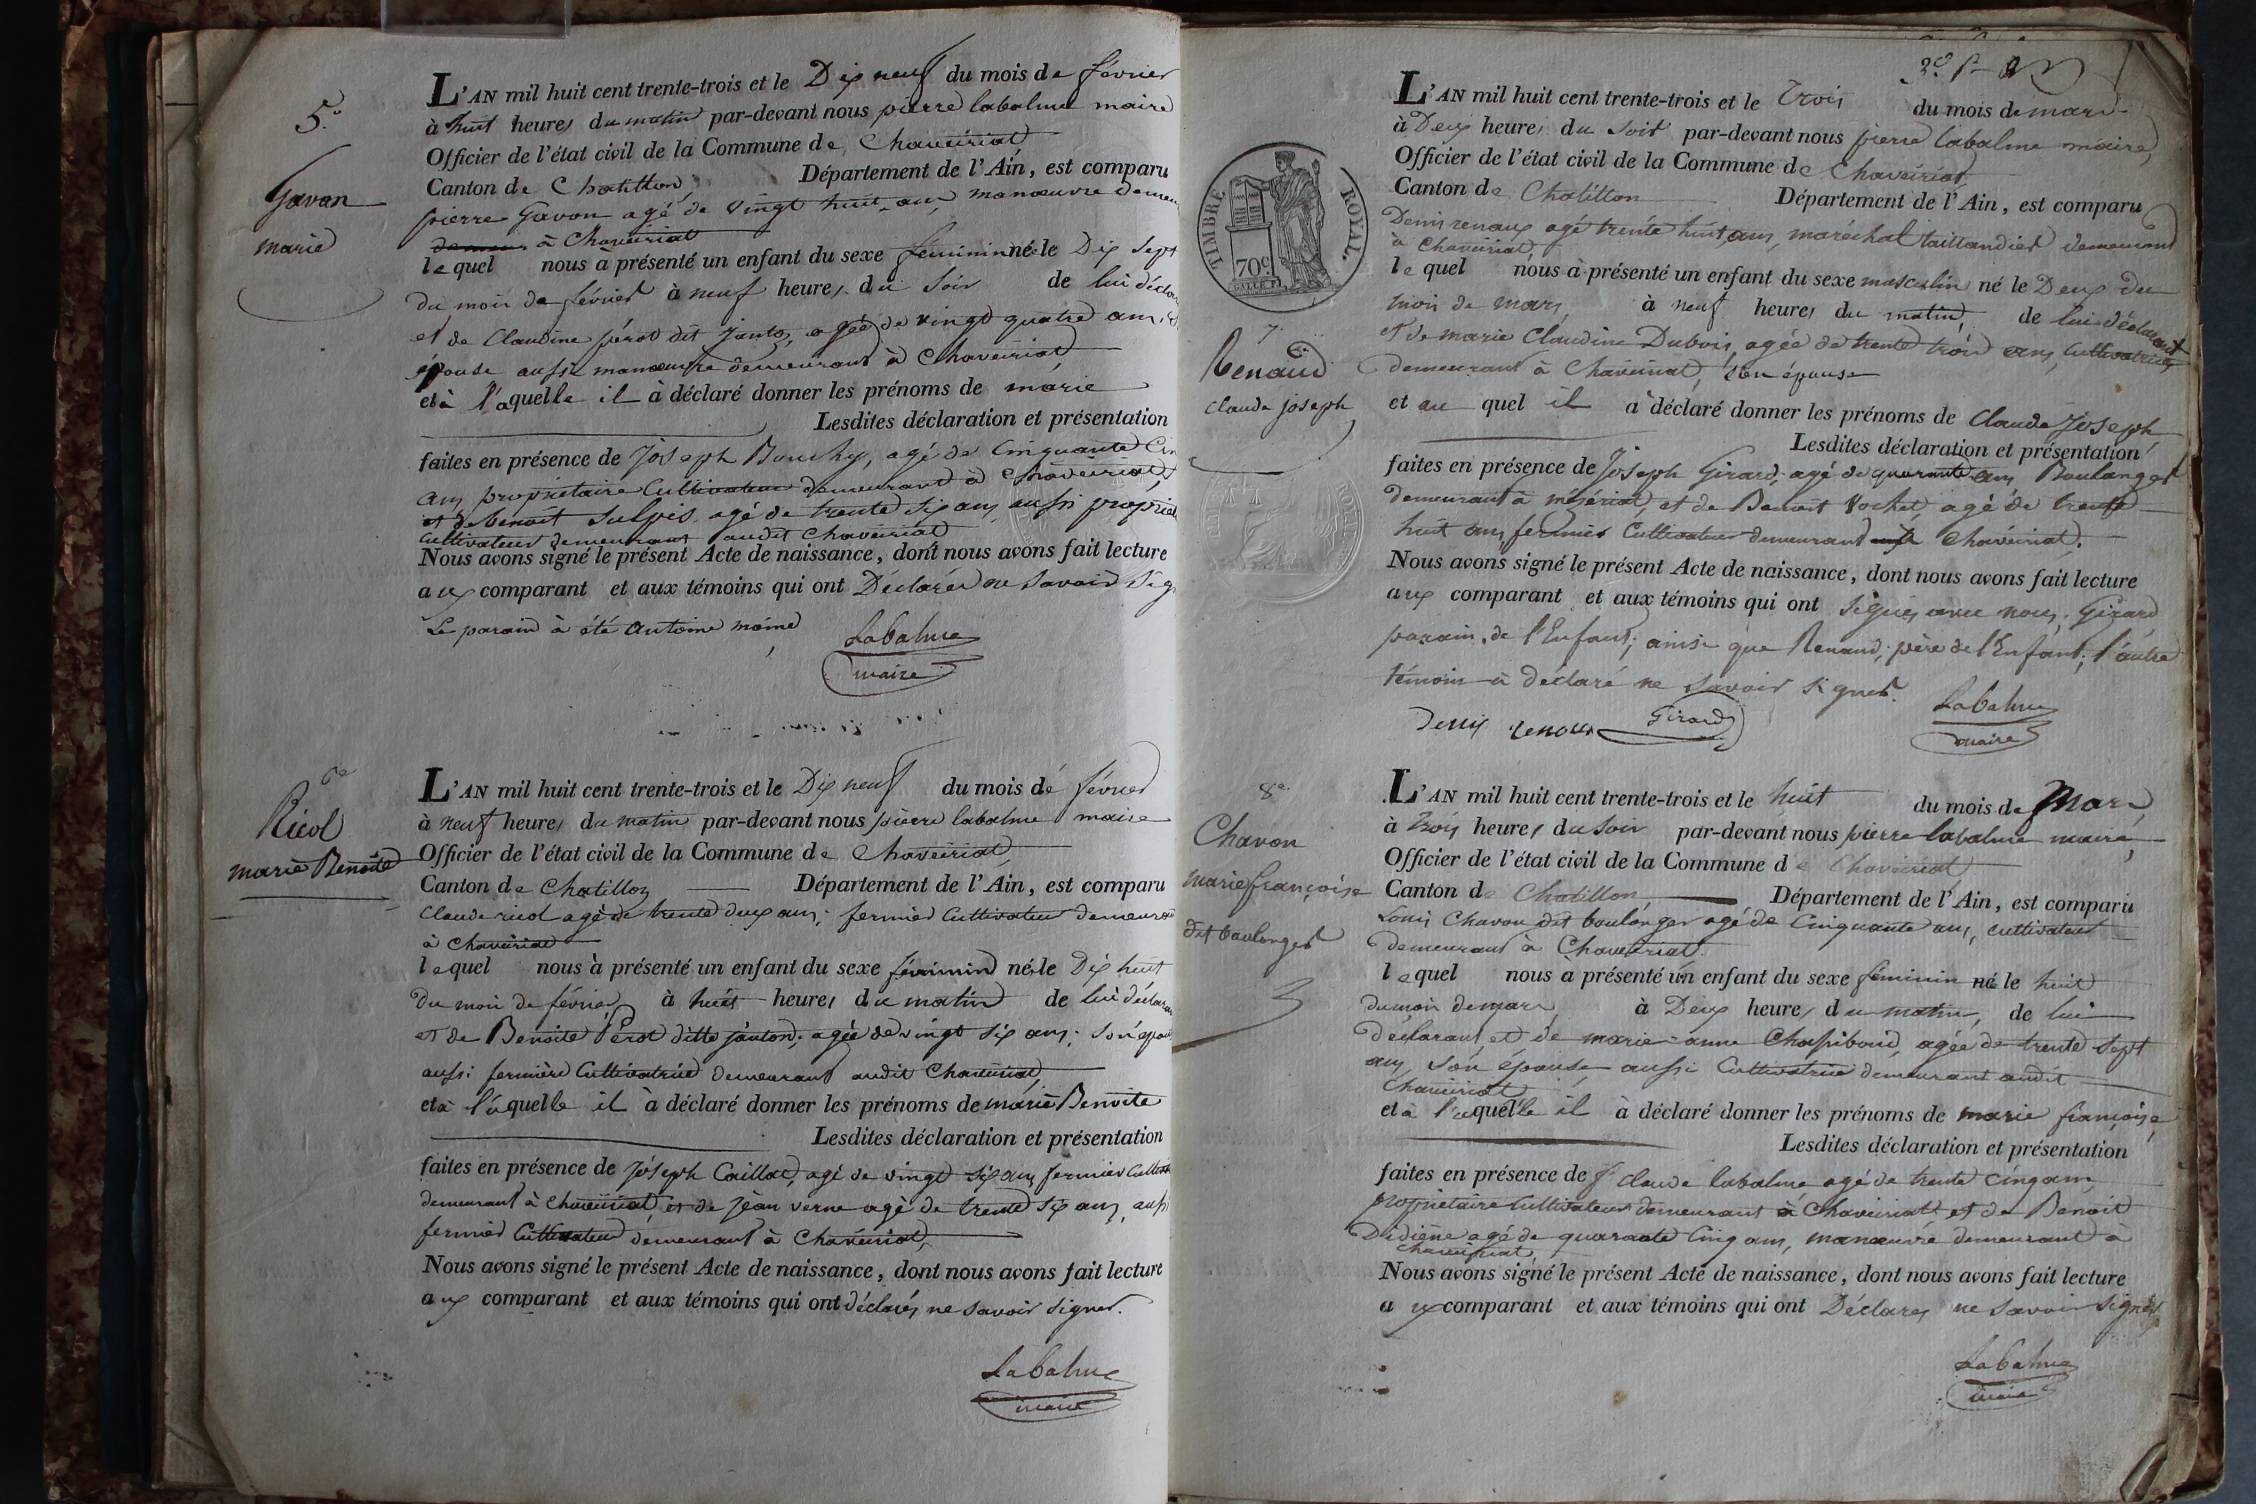 5.e
Gavan
marie
L'AN mil huit cent trente-trois et le Dix neuf du mois de février
à huit heures du matin par-devant nous pierre labalme maire
Officier de l'état civil de la Commune de Chaveiriat
Canton de Chatillon Département de l'Ain, est comparu
pierre Gavon agé de vingt huit ans, manœuvre
à Chaveiriat
lequel nous a présenté un enfant du sexe féminin né le Dix Sept
du mois de février à neuf heures du soir de lui
et de Claudine pérot dit agée de vingt quatre ans
épouse aussi manœuvre demeurant à Chaveiriat
et à l'aquelle il à déclaré donner les prénoms de marie
Lesdites déclaration et présentation
faites en présence de Joseph Bouchy, agé de Cinquante
ans, propriétaire Cultivateur demeurant à Chaveiriat,
et de benoit Sulpis agé de trente six ans, aussi
Cultivateur demeurant audit Chaveiriat
Nous avons signé le présent Acte de naissance, dont nous avons fait lecture
aux comparant et aux témoins qui ont Déclarés ne Savoir
Le parain à été antoine moine
Labalme
maire
6e
Ricol
marie Benoite
L'AN mil huit cent trente-trois et le Dix neuf du mois de février
à neuf heures du matin par-devant nous pierre labalme maire
Officier de l'état civil de la Commune de Chaveiriat
Canton de Chatillon Département de l'Ain, est comparu
Claude ricol agé de trente deux ans; fermier Cultivateur
à Chaveiriat
lequel nous à présenté un enfant du sexe féminin né le Dix huit
du mois de février à huit heures du matin de lui
et de Benoite Pérot ditte janton, agée de vingt six ans; son
aussi fermière Cultivatrice demeurant audit Chaveiriat,
et à l'aquelle il à déclaré donner les prénoms de marie Benoite
Lesdites déclaration et présentation
faites en présence de Joseph Caillat, agé de vingt six ans, fermier
demeurant à Chaveiriat, et de jean verne agé de trente six ans,
fermier Cultivateur demeurant à Chaveiriat,
Nous avons signé le présent Acte de naissance, dont nous avons fait lecture
aux comparant et aux témoins qui ont déclarés ne savoir signer.
Labalme
maire
TIMBRE ROYAL.
70c
7.
Renaud
Claude joseph
L'AN mil huit cent trente-trois et le trois du mois de mars
à Deux heures du soir par-devant nous pierre labalme maire,
Officier de l'état civil de la Commune de Chaveiriat
Canton de Chatillon Département de l'Ain, est comparu
Denis renaux agé trente huit ans, maréchal taillandier demeurant
à Chaveiriat,
lequel nous à présenté un enfant du sexe masculin né le Deux du
mois de mars, à neuf heures du matin, de lui déclarant
et de marie Claudine Dubois, agée de trente trois ans, cultivatrice
demeurant à Chaveiriat, son épouse
et au quel il a déclaré donner les prénoms de Claude Joseph
Lesdites déclaration et présentation
faites en présence de Joseph Girard, agé de quarante ans Boulanger
demeurant à mézériat, et de Benoit Vochet agé de trente
huit ans, fermier Cultivateur demeurant Chaveiriat.
Nous avons signé le présent Acte de naissance, dont nous avons fait lecture
aux comparant et aux témoins qui ont signés avec nous; Girard
parain de l'Enfant; ainsi que Renaud, père de l'Enfant; l'autre
témoin à déclaré ne savoir signer.
Denis renaux Girard Labalme
maire
8e
Chavon
marie françoise
dit boulanger
L'AN mil huit cent trente-trois et le huit du mois de Mars
à trois heures du soir par-devant nous pierre labalme maire,
Officier de l'état civil de la Commune de Chaveiriat
Canton de Chatillon Département de l'Ain, est comparu
Louis Chavon dit boulanger agé de Cinquante ans, cultivateur
demeurant à Chaveiriat
lequel nous a présenté un enfant du sexe féminin né le huit
du mois de mars à Deux heures du matin, de lui
déclarant et de marie anne agée de trente sept
ans, son épouse aussi Cultivatrice demeurant audit
Chaveiriat
et à l'aquelle il à déclaré donner les prénoms de marie françoise,
Lesdites déclaration et présentation
faites en présence de Claude labalme agé de trente cinq ans,
propriétaire Cultivateur demeurant à Chaveiriat et de Benoit
agé de quarante Cinq ans, manœuvre demeurant à
Chaveiriat,
Nous avons signé le présent Acte de naissance, dont nous avons fait lecture
aux comparant et aux témoins qui ont Déclarés ne savoir signer
Labalme
maire